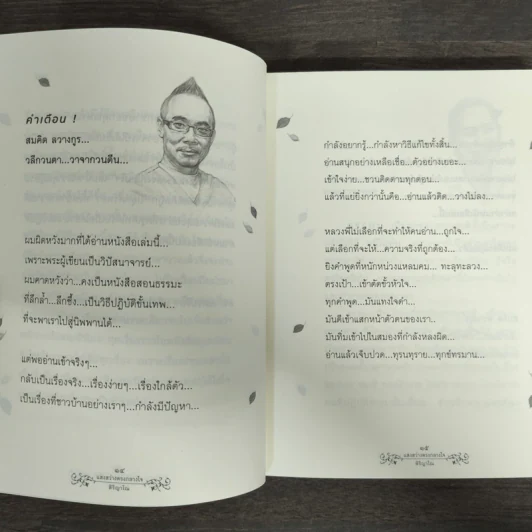 คำเตือน !
สมคิด ลวางกูร...
วลีกวนดา...วาจากวนตีน...
ผมผิดหวังมากที่ได้อ่านหนังสือเล่มนี้...
เพราะพระผู้เขียนเป็นวิปัสนาจารย์...
ผมคาดหวังว่า...คงเป็นหนังสือสอนธรรมะ
ที่ลึกล้ำ...ลึกซึ้ง...เป็นวิธีปฏิบัติขั้นเทพ...
ที่จะพาเราไปสู่นิพพานได้...
แต่พออ่านเข้าจริงๆ...
กลับเป็นเรื่องจริง...เรื่องง่ายๆ...เรื่องใกล้ตัว...
เป็นเรื่องที่ชาวบ้านอย่างเราๆ...กำลังมีปัญหา...
๒๔
แสงสว่างตรงกลางใจ
พิรุฬาโณ
กำลังอยากรู้...กำลังหาวิธีแก้ไขทั้งสิ้น...
อ่านสนุกอย่างเหลือเชื่อ...ตัวอย่างเยอะ...
เข้าใจง่าย...ชวนคิดตามทุกตอน...
แล้วที่แย่ยิ่งกว่านั้นคือ...อ่านแล้วคิด...วางไม่ลง...
หลวงพี่ไม่เลือกที่จะทำให้คนอ่าน...ถูกใจ...
แต่เลือกที่จะให้...ความจริงที่ถูกต้อง...
ยิงคำพูดที่หนักหน่วงแหลมคม... ทะลุทะลวง...
ตรงเป้า...เข้าตัดขั้วหัวใจ...
ทุกคำพูด...มันแทงใจดำ...
มันตีเข้าแสกหน้าตัวตนของเรา...
มันทิ่มเข้าไปในสมองที่กำลังหลงผิด...
อ่านแล้วเจ็บปวด...ทุรนทุราย...ทุกข์ทรมาน...
๒๕
แสงสว่างตรงกลางใจ